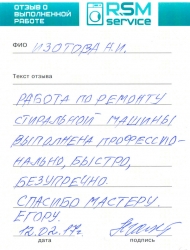 ОТЗЫВ О
ВЫПОЛНЕННОЙ
РАБОТЕ
RSM
service
ФИО ИЗОТОВА Н.И.
Текст отзыва
РАБОТА ПО РЕМОНТУ
СТИРАЛЬНОЙ МАШИНЫ
ВЫПОЛНЕНА ПРОФЕССИО-
НАЛЬНО, БЫСТРО,
БЕЗУПРЕЧНО.
СПАСИБО МАСТЕРУ
ЕГОРУ.
12.02.17г.
дата подпись